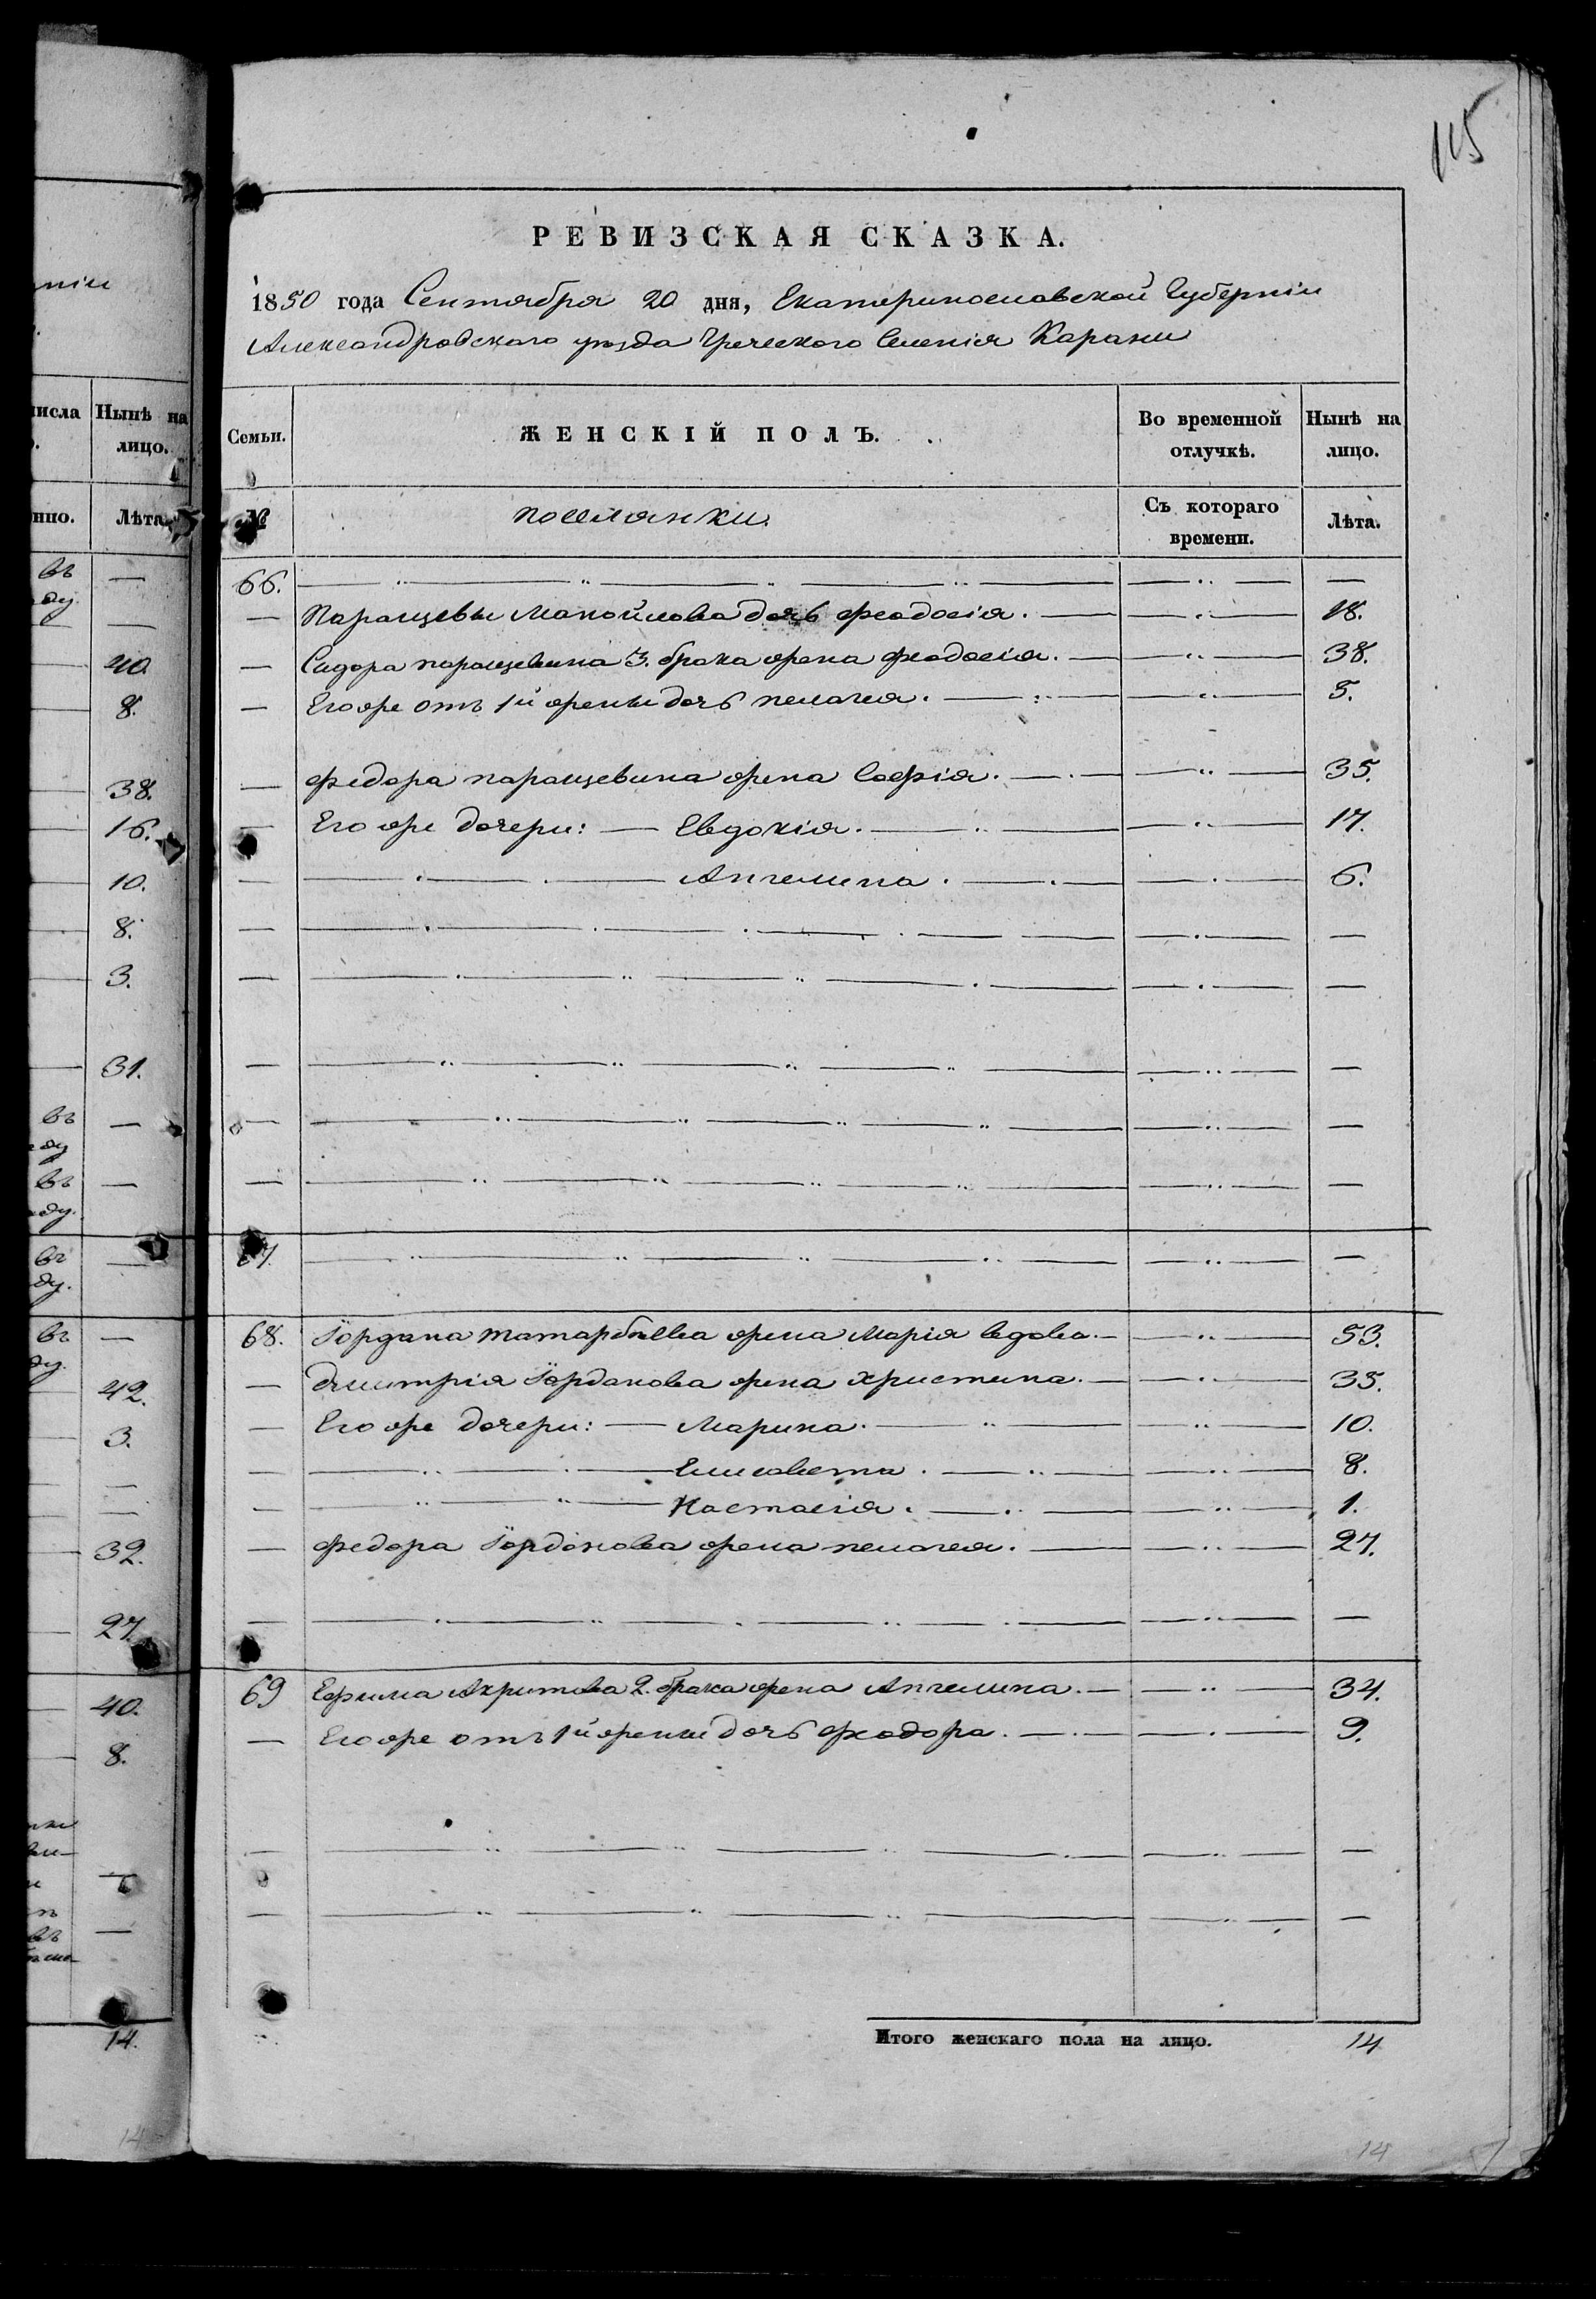 115
РЕВИЗСКАЯ СКАЗКА.
1850 года Сентября 20 дня, Екатеринославской Губерніи
Александровскаго уѣзда Греческого Селенія Карани
Семьи. ЖЕНСКІЙ ПОЛЪ. Во временной отлучкѣ. Нынѣ на лицо.
№ поселянки. Съ котораго времени. Лѣта.
66. — — —
— Паращевы Манойлова дочь Феодосія. — 18.
— Сидора паращевина 3. брака жена Феодосія. — 38.
— Его же отъ 1й жены дочь пелагея. — 5.
— Федора паращевина жена Софія. — 35.
— Его же дочери: — Евдокія. — 17.
— Ангелина. — 6.
67. — — —
68. Іордана Татарбѣева жена Марія вдова. — 53.
— Дмитрія Іорданова жена Христина. — 35.
— Его же дочери: — Марина. — 10.
— Елисавета. — 8.
— Настасія. — 1.
— Федора Іорданова жена пелагея. — 27.
69 Ефима Акритова 2. брака жена Ангелина. — 34.
— Его же отъ 1й жены дочь Феодора. — 9.
Итого женскаго пола на лицо. 14
14
ніи
числа Нынѣ на
лицо.
Лѣта.
въ —
40.
8.
38.
16.
10.
8.
3.
31.
въ —
въ —
въ —
въ —
42.
3.
32.
27.
40.
8.
14.
14